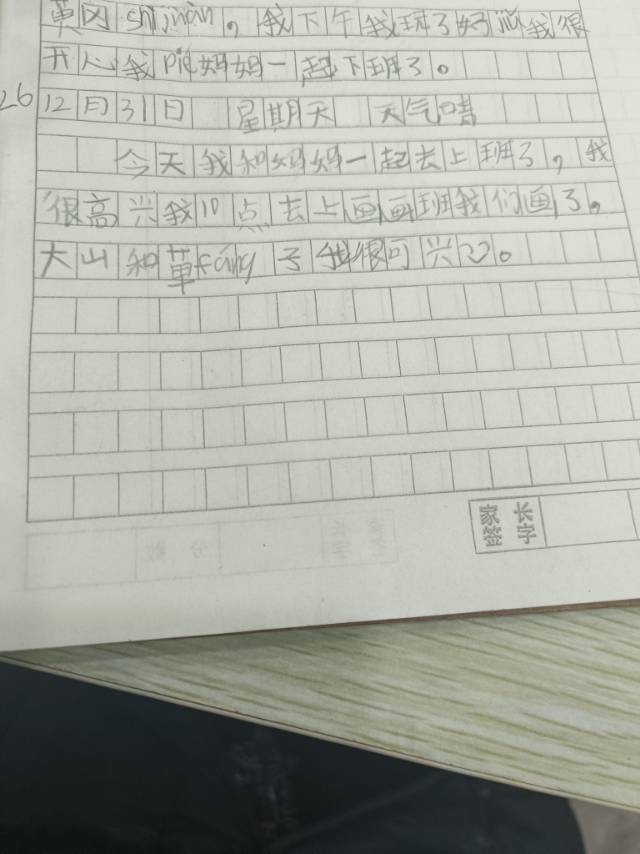 黄冈shijuàn，我下午我班了好 我很
开心我péi妈妈一起下班了。
26
12月31日 星期天 天气晴
今天我和妈妈一起去上班了，我
很高兴我10点去上画画班我们画了。
大山和草fáng子我很可兴。
家长
签字